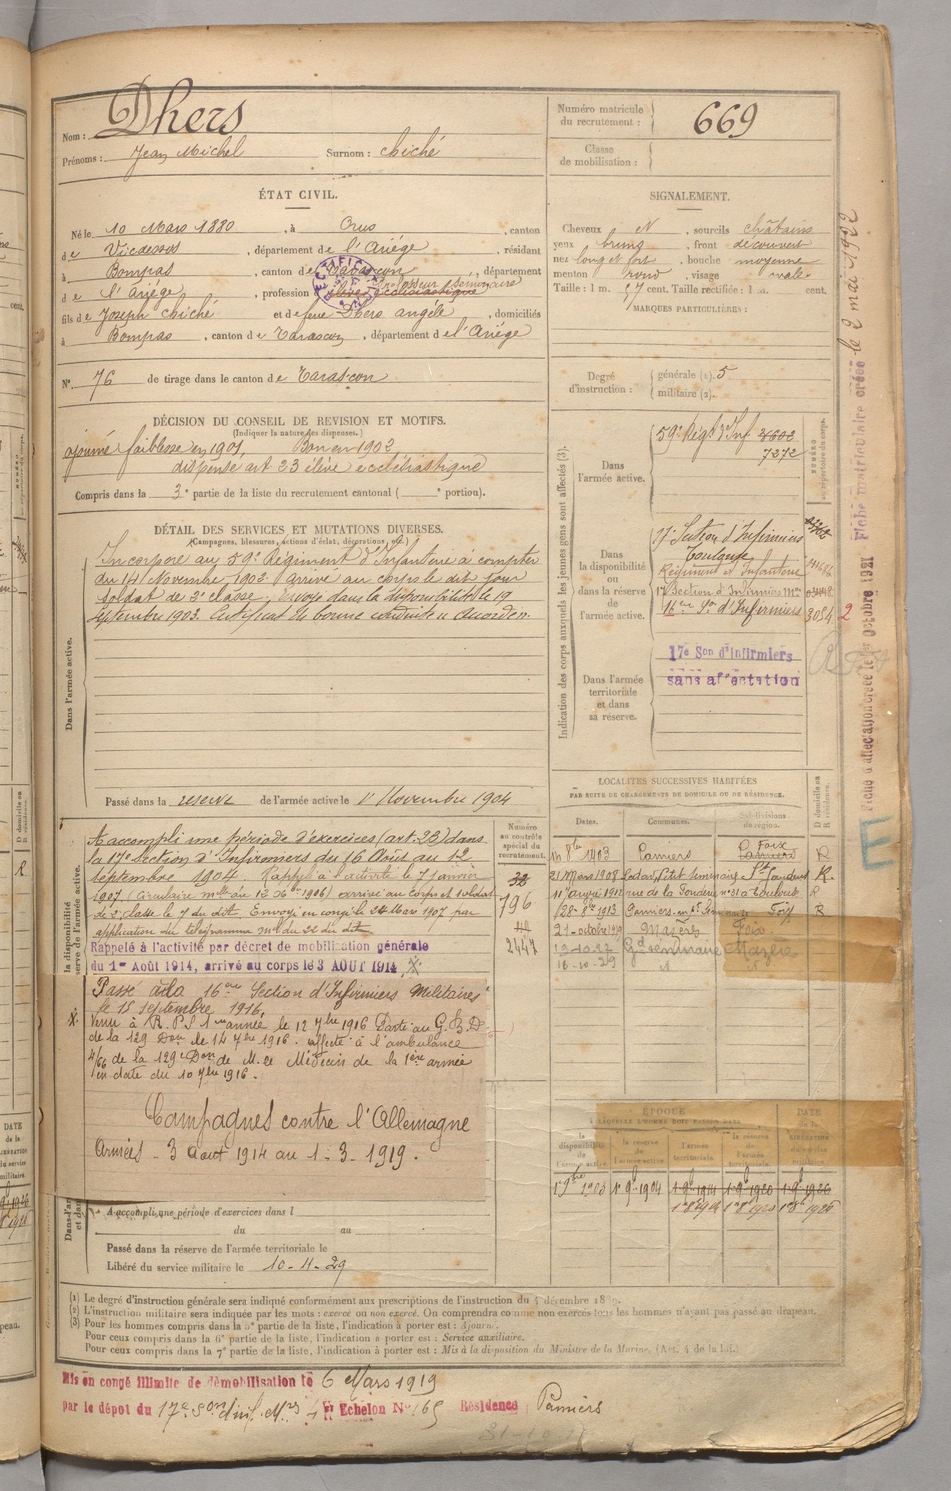 Nom : Dhers
Prénoms : Jean Michel Surnom : Chiché
Numéro matricule du recrutement : 669
Classe de mobilisation :
ÉTAT CIVIL.
Né le 10 Mars 1880, à Orus, canton
de Vicdessos, département de l'Ariége, résidant
à Bompas, canton de Tarascon, département
de l'Ariége, profession élève ecclésiastique professeur séminaire
fils de Joseph Chiché et de feue Dhers angéle, domiciliés
à Bompas, canton de Tarascon, département de l'Ariége
N° 76 de tirage dans le canton de Tarascon
SIGNALEMENT.
Cheveux N, sourcils châtains
yeux bruns, front découvert
nez long et fort, bouche moyenne
menton rond, visage ovale
Taille : 1 m. 57 cent. Taille rectifiée : 1 m. cent.
MARQUES PARTICULIÈRES :
Degré d'instruction : générale (1). 5
militaire (2).
DÉCISION DU CONSEIL DE REVISION ET MOTIFS.
(Indiquer la nature des dispenses.)
ajourné faiblesse en 1901, Bon en 1902
dispensé art 23 élève ecclésiastique
Compris dans la 3e partie de la liste du recrutement cantonal ( e portion).
DÉTAIL DES SERVICES ET MUTATIONS DIVERSES.
(Campagnes, blessures, actions d'éclat, décorations, etc.)
Dans l'armée active.
Incorporé au 59e Régiment d'Infanterie à compter
du 14 Novembre 1902. arrivé au corps le dit jour
soldat de 2e classe; envoyé dans la disponibilité le 19
septembre 1903. Certificat de bonne conduite "accordé".
Passé dans la réserve de l'armée active le 1er Novembre 1904
Indication des corps auxquels les jeunes gens sont affectés (3).
NUMÉRO au répertoire du corps.
Dans l'armée active.
59e Régt d'Inf. 3602
7272
Dans la disponibilité ou dans la réserve de l'armée active.
17e Section d'Infirmiers
Toulouse
Régiment d'Infanterie
17e Section d'Infirmiers Mres
16ème Son d'Infirmiers 3054
2
Dans l'armée territoriale et dans sa réserve.
17e Son d'Infirmiers
sans affectation
Fiche d'affectation créée le 1er Octobre 1921
Fiche matriculaire créée le 2 mai 1922
E
A accompli une période d'exercices (art. 23) dans
la 17e Section d'Infirmiers du 16 Août au 12
septembre 1904. Rappelé à l'activité le 7 janvier
1907 (Circulaire mlle du 12 Xbre 1906) arrivé au corps et soldat
de 2e classe le 7 du dit. Envoyé en congé le 24 Mars 1907 par
application du télégramme mel du 22 du dit
Rappelé à l'activité par décret de mobilisation générale
du 1er Août 1914, arrivé au corps le 3 AOUT 1914 , X.
Passé à la 16ème Section d'Infirmiers Militaires
le 15 septembre 1916,
X. Venu à R.P.S 1ère année le 12 7bre 1916 Parti au G.B.D
de la 129 Don le 14 7bre 1916. affecté à l'ambulance
4/66 de la 129e Don de M. le Médecin de la 1ère armée
en date du 10 9bre 1916.
Campagnes contre l'Allemagne
Armées - 3 août 1914 au 1-3-1919.
A accompli une période d'exercices dans l
du au
Passé dans la réserve de l'armée territoriale le
Libéré du service militaire le 10-11-29
Numéro au contrôle spécial du recrutement.
32
796
2447
LOCALITÉS SUCCESSIVES HABITÉES
PAR SUITE DE CHANGEMENTS DE DOMICILE OU DE RÉSIDENCE.
Dates. Communes. Subdivisions de région. D domicile ou R résidence.
8bre 1903 Pamiers Pamiers Foix R
21 Mars 1908 Petit Séminaire St Gaudens R
11 avril 1912 rue de la Fonderie n° 31 à Toulouse R
28-8bre 1913 Pamiers Foix R
21-octobre 1919 Mazères Foix
13-10-27 Gd séminaire
16-10-29
ÉPOQUE
À LAQUELLE L'HOMME DOIT PASSER DANS
DATE de la LIBÉRATION du service militaire.
la disponibilité de l'armée active. la réserve de l'armée active. l'armée territoriale. la réserve de l'armée territoriale.
1er 9bre 1903 1er 9bre 1904 1er 9bre 1914 1er 9bre 1920 1er 9bre 1926
(1) Le degré d'instruction générale sera indiqué conformément aux prescriptions de l'instruction du 4 décembre 1889.
(2) L'instruction militaire sera indiquée par les mots : exercé ou non exercé. On comprendra comme non exercés tous les hommes n'ayant pas passé au drapeau.
(3) Pour les hommes compris dans la 5e partie de la liste, l'indication à porter est : Ajourné.
Pour ceux compris dans la 6e partie de la liste, l'indication à porter est : Service auxiliaire.
Pour ceux compris dans la 7e partie de la liste, l'indication à porter est : Mis à la disposition du Ministre de la Marine. (Art. 4 de la loi.)
Mis en congé illimité de démobilisation le 6 Mars 1919
par le dépôt du 17e Son d'inf. Mres Echelon N° 165 Résidence Pamiers